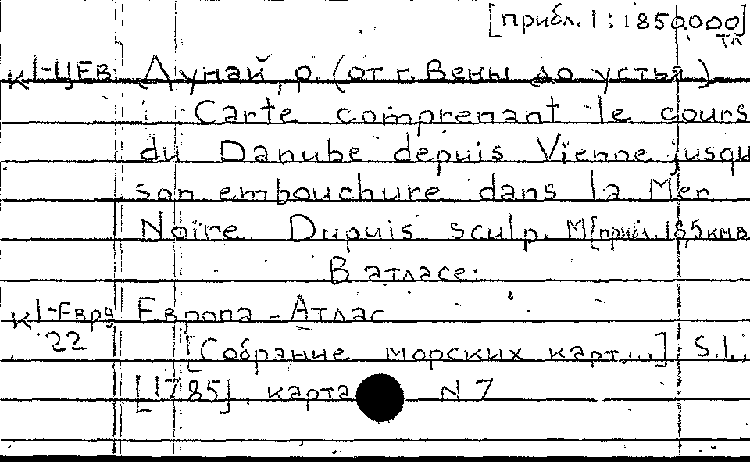 [прибл. 1:1850000]
тл
К1-ЦЕв Дунай, р. (от г. Вены до устья)
Carte comprenant le cours
du Danube depuis Vienne jusqu
son embouchure dans la Mer
Noire. Dupuis sculp. М[прибл. 18,5 км в
В атласе:
К1-Евр Европа - Атлас
22 [Собрание морских карт...] S.l.,
[1785], карта N 7